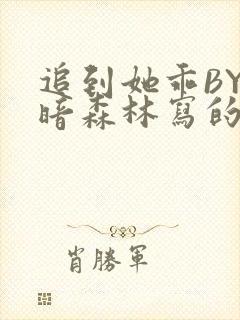 追到她乖BY
暗森林寫的
肖勝軍